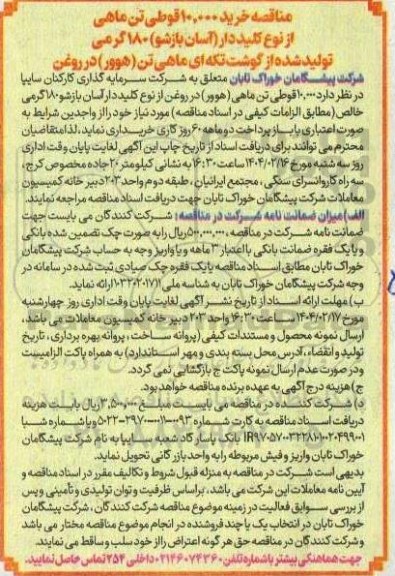 مناقصه خرید ۱۰,۰۰۰ قوطی تن ماهی
از نوع کلیددار (آسان بازشو) ۱۸۰ گرمی
تولید شده از گوشت تکه ای ماهی تن (هوور) در روغن
شرکت پیشگامان خوراک تابان متعلق به شرکت سرمایه گذاری کارکنان سایپا
در نظر دارد ۱۰,۰۰۰ قوطی تن ماهی (هوور) در روغن از نوع کلیددار آسان بازشو ۱۸۰ گرمی
خالص (مطابق الزامات کیفی در اسناد مناقصه) مورد نیاز خود را از واجدین شرایط به
صورت اعتباری با باز پرداخت دو ماهه ۶۰ روز کاری خریداری نماید، لذا متقاضیان
محترم می توانند برای دریافت اسناد از تاریخ چاپ این آگهی لغایت پایان وقت اداری
روز سه شنبه مورخ ۱۴۰۴/۰۲/۱۶ ساعت ۱۶:۳۰ به نشانی کیلومتر ۲۰ جاده مخصوص کرج،
سه راه کاروانسرای سنگی، مجتمع ایرانیان، طبقه دوم واحد ۲۰۳ دبیر خانه کمیسیون
معاملات شرکت پیشگامان خوراک تابان جهت دریافت اسناد مناقصه مراجعه نمایند.
الف) میزان ضمانت نامه شرکت در مناقصه: شرکت کنندگان می بایست جهت
ضمانت نامه شرکت در مناقصه، ۵۰۰,۰۰۰,۰۰۰ ریال را به صورت چک تضمین شده بانکی
و یا یک فقره ضمانت بانکی با اعتبار ۳ ماهه و یا واریز وجه به حساب شرکت پیشگامان
خوراک تابان مطابق اسناد مناقصه یا یک فقره چک صیادی ثبت شده در سامانه در
وجه شرکت پیشگامان خوراک تابان به شناسه ملی ۱۰۳۲۰۲۰۱۷۱۱ ارائه نماید.
ب) مهلت ارائه اسناد از تاریخ نشر آگهی لغایت پایان وقت اداری روز چهارشنبه
مورخ ۱۴۰۴/۰۲/۱۷ ساعت ۱۶:۳۰ واحد ۲۰۳ دبیر خانه کمیسیون معاملات می باشد،
ارسال نمونه محصول و مستندات کیفی (پروانه ساخت، پروانه بهره برداری، تاریخ
تولید و انقضاء، آدرس محل بسته بندی و مهر استاندارد) به همراه پاکت الزامیست
و در صورت عدم ارسال نمونه پاکت ج بازگشایی نمی گردد.
ج) هزینه درج آگهی به عهده برنده مناقصه خواهد بود.
د) شرکت کننده در مناقصه می بایست مبلغ ۳,۵۰۰,۰۰۰ ریال بابت هزینه
دریافت اسناد مناقصه به کارت شماره و یا شماره شبا
بانک پاسارگاد شعبه سایپا به نام شرکت پیشگامان
خوراک تابان واریز و فیش مربوطه را به واحد بازرگانی تحویل نماید.
بدیهی است شرکت در مناقصه به منزله قبول شروط و تکالیف مقرر در اسناد مناقصه و
آیین نامه معاملات این شرکت می باشد، براساس ظرفیت و توان تولیدی و تأمینی و پس
از بررسی سوابق فعالیت در زمینه موضوع مناقصه شرکت کنندگان، شرکت پیشگامان
خوراک تابان در انتخاب یک یا چند فروشنده در انجام موضوع مناقصه مختار می باشد
و شرکت کنندگان در مناقصه حق هر گونه اعتراض را از خود سلب و ساقط می نمایند.
جهت هماهنگی بیشتر با شماره تلفن ۰۲۱۴۶۰۷۴۳۶۰ داخلی ۲۵۴ تماس حاصل نمایید.